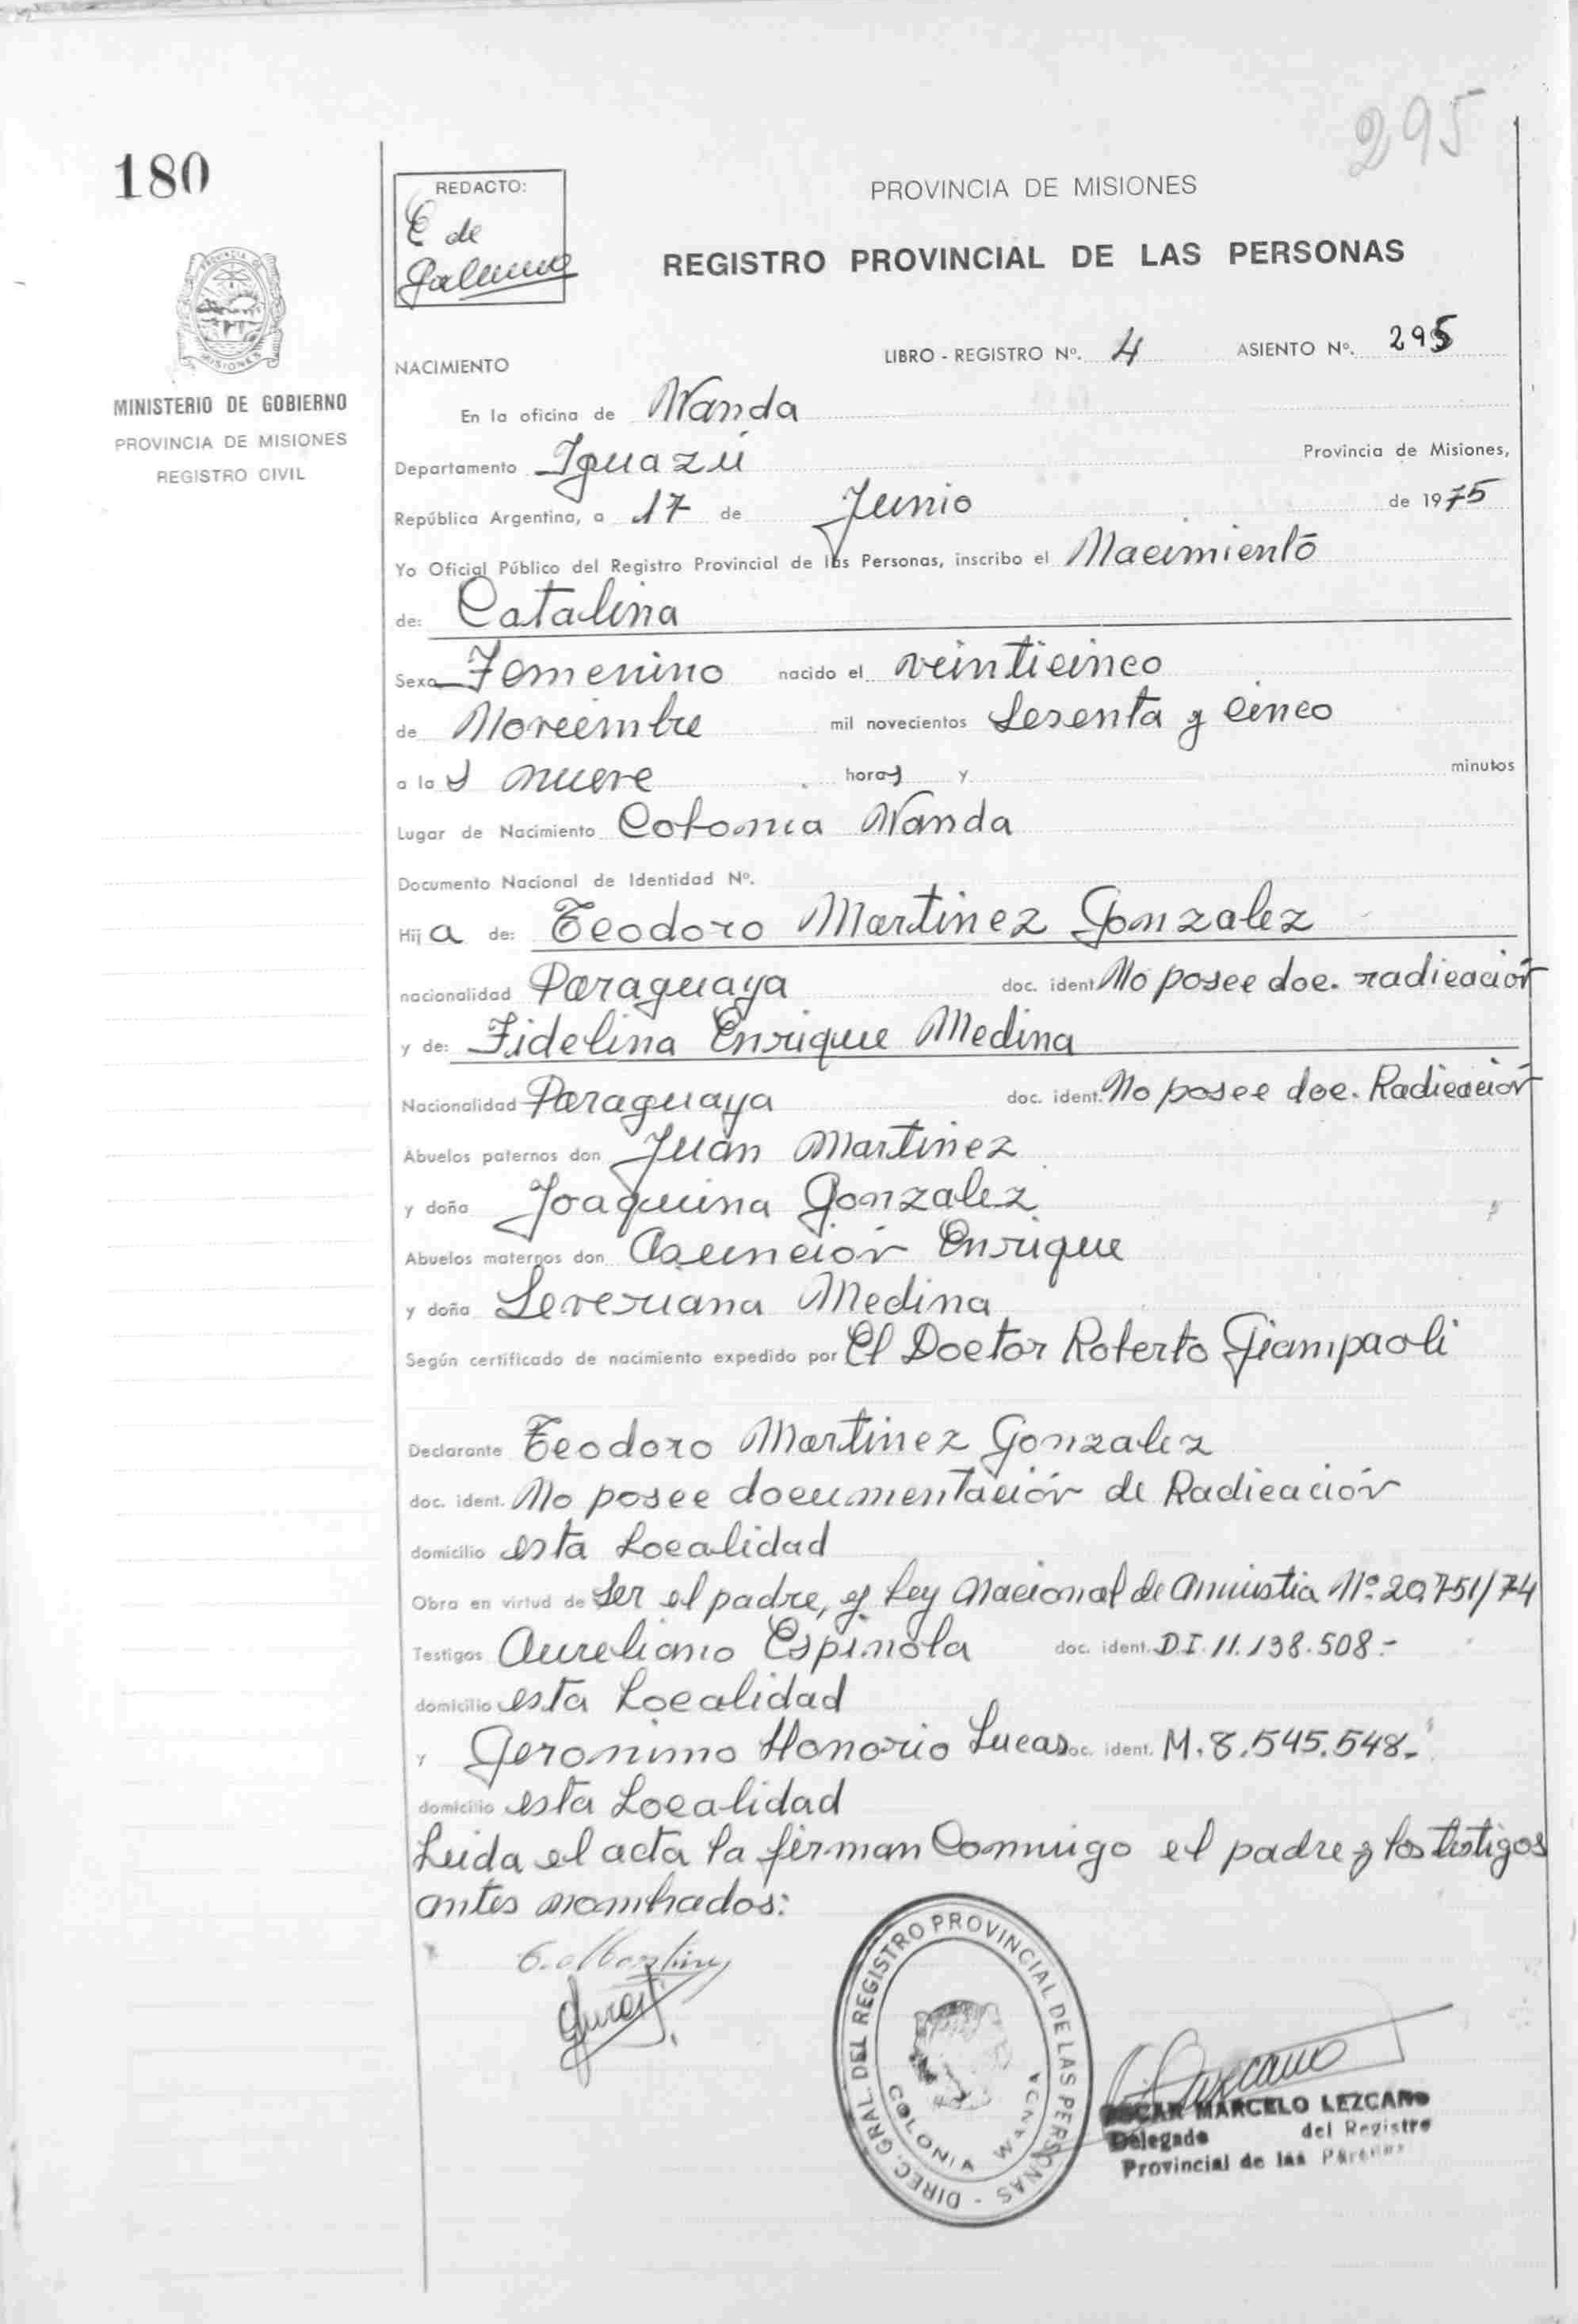 295
180
REDACTO:
E de
Galeano
PROVINCIA DE MISIONES
REGISTRO PROVINCIAL DE LAS PERSONAS
MINISTERIO DE GOBIERNO
PROVINCIA DE MISIONES
REGISTRO CIVIL
NACIMIENTO
LIBRO - REGISTRO Nº. 4 ASIENTO Nº. 295
En la oficina de Wanda
Departamento Iguazú Provincia de Misiones,
República Argentina, a 17 de Junio de 1975
Yo Oficial Público del Registro Provincial de las Personas, inscribo el Nacimiento
de: Catalina
Sexo Femenino nacido el veinticinco
de Noviembre mil novecientos Sesenta y cinco
a las nueve horas y minutos
Lugar de Nacimiento Colonia Wanda
Documento Nacional de Identidad Nº.
Hija de: Teodoro Martinez Gonzalez
nacionalidad Paraguaya doc. ident. No posee doc. radicación
y de: Fidelina Enrique Medina
Nacionalidad Paraguaya doc. ident. No posee doc. Radicación
Abuelos paternos don Juan Martinez
y doña Joaquina Gonzalez
Abuelos maternos don Asunción Enrique
y doña Severiana Medina
Según certificado de nacimiento expedido por El Doctor Roberto Giampaoli
Declarante Teodoro Martinez Gonzalez
doc. ident. No posee documentación de Radicación
domicilio esta Localidad
Obra en virtud de ser el padre, y Ley Nacional de Amnistia Nº 20.751/74
Testigos Aureliano Espinola doc. ident. D.I. 11.138.508.-
domicilio esta Localidad
y Geronimo Honorio Lucas doc. ident. M. 8.545.548.-
domicilio esta Localidad
Leida el acta la firman Conmigo el padre y los testigos
antes nombrados:
DIREC. GRAL. DEL REGISTRO PROVINCIAL DE LAS PERSONAS
COLONIA WANDA
OSCAR MARCELO LEZCANO
Delegado del Registro
Provincial de las Personas